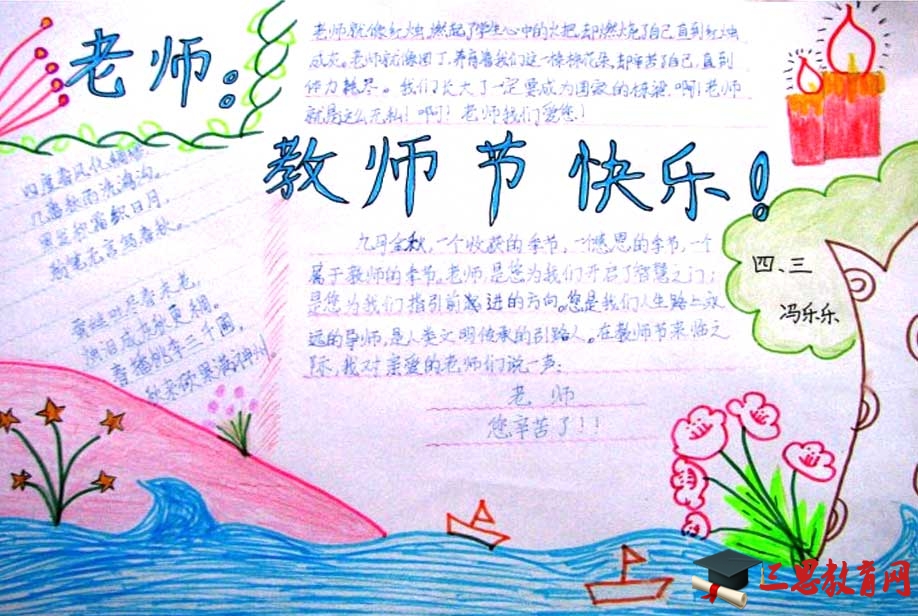 老师:
老师就像红烛,燃起了学生心中的火把,却燃烧了自己直到红烛
成灰。老师就像园丁,养育着我们这一棵棵花朵,却辛苦了自己,直到
体力耗尽。我们长大了一定要成为国家的栋梁。啊!老师
就是这么无私!啊!老师我们爱您!
教师节快乐!
四度春风化绸缪,
几番秋雨洗鸿沟。
黑发积霜织日月,
粉笔无言写春秋。
蚕丝吐尽春未老,
烛泪成灰秋更稠。
春播桃李三千圃,
秋来硕果满神州。
九月金秋,一个收获的季节,一个感恩的季节,一个
属于教师的季节。老师,是您为我们开启了智慧之门;
是您为我们指引前进的方向。您是我们人生路上永
远的导师,是人类文明传承的引路人。在教师节来临之
际,我对亲爱的老师们说一声:
老师
您辛苦了!!
四、三
冯乐乐
三思教育网